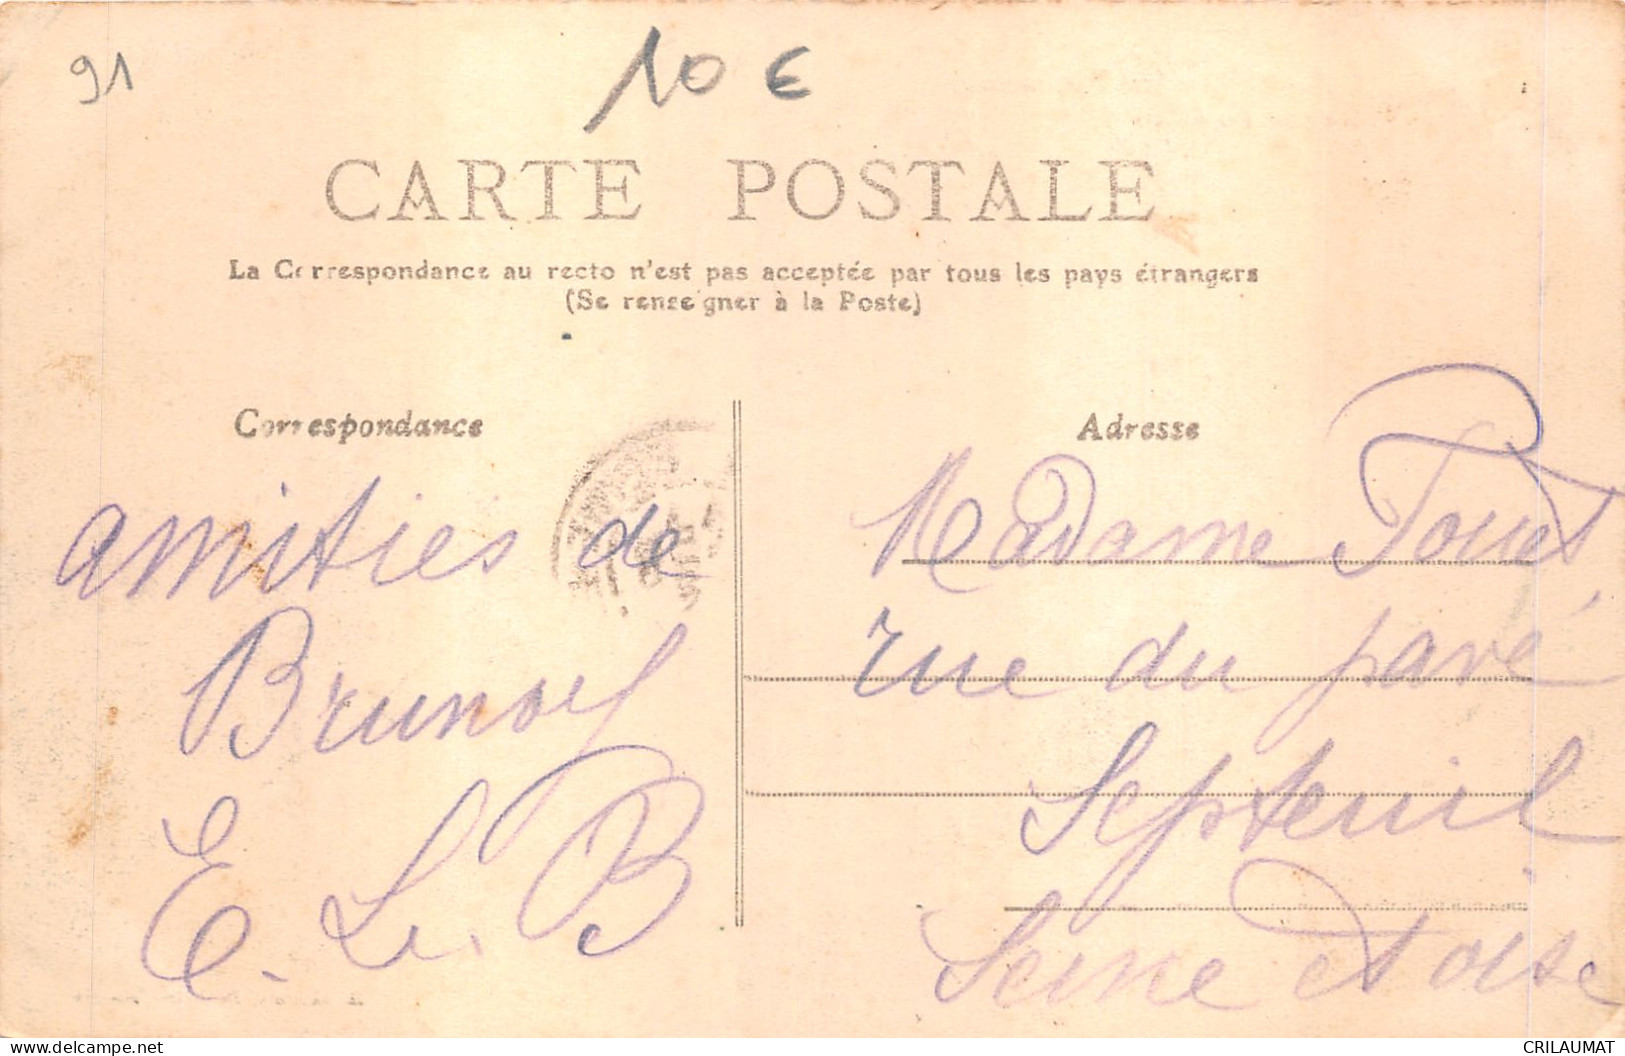 91
10 €
CARTE POSTALE
La Correspondance au recto n'est pas acceptée par tous les pays étrangers
(Se renseigner à la Poste)
Correspondance
Adresse
amitiés de
Brunoy
E. Le. B
Madame
rue du pavé
Septeuil
Seine et Oise
delcampe.net
CRILAUMAT